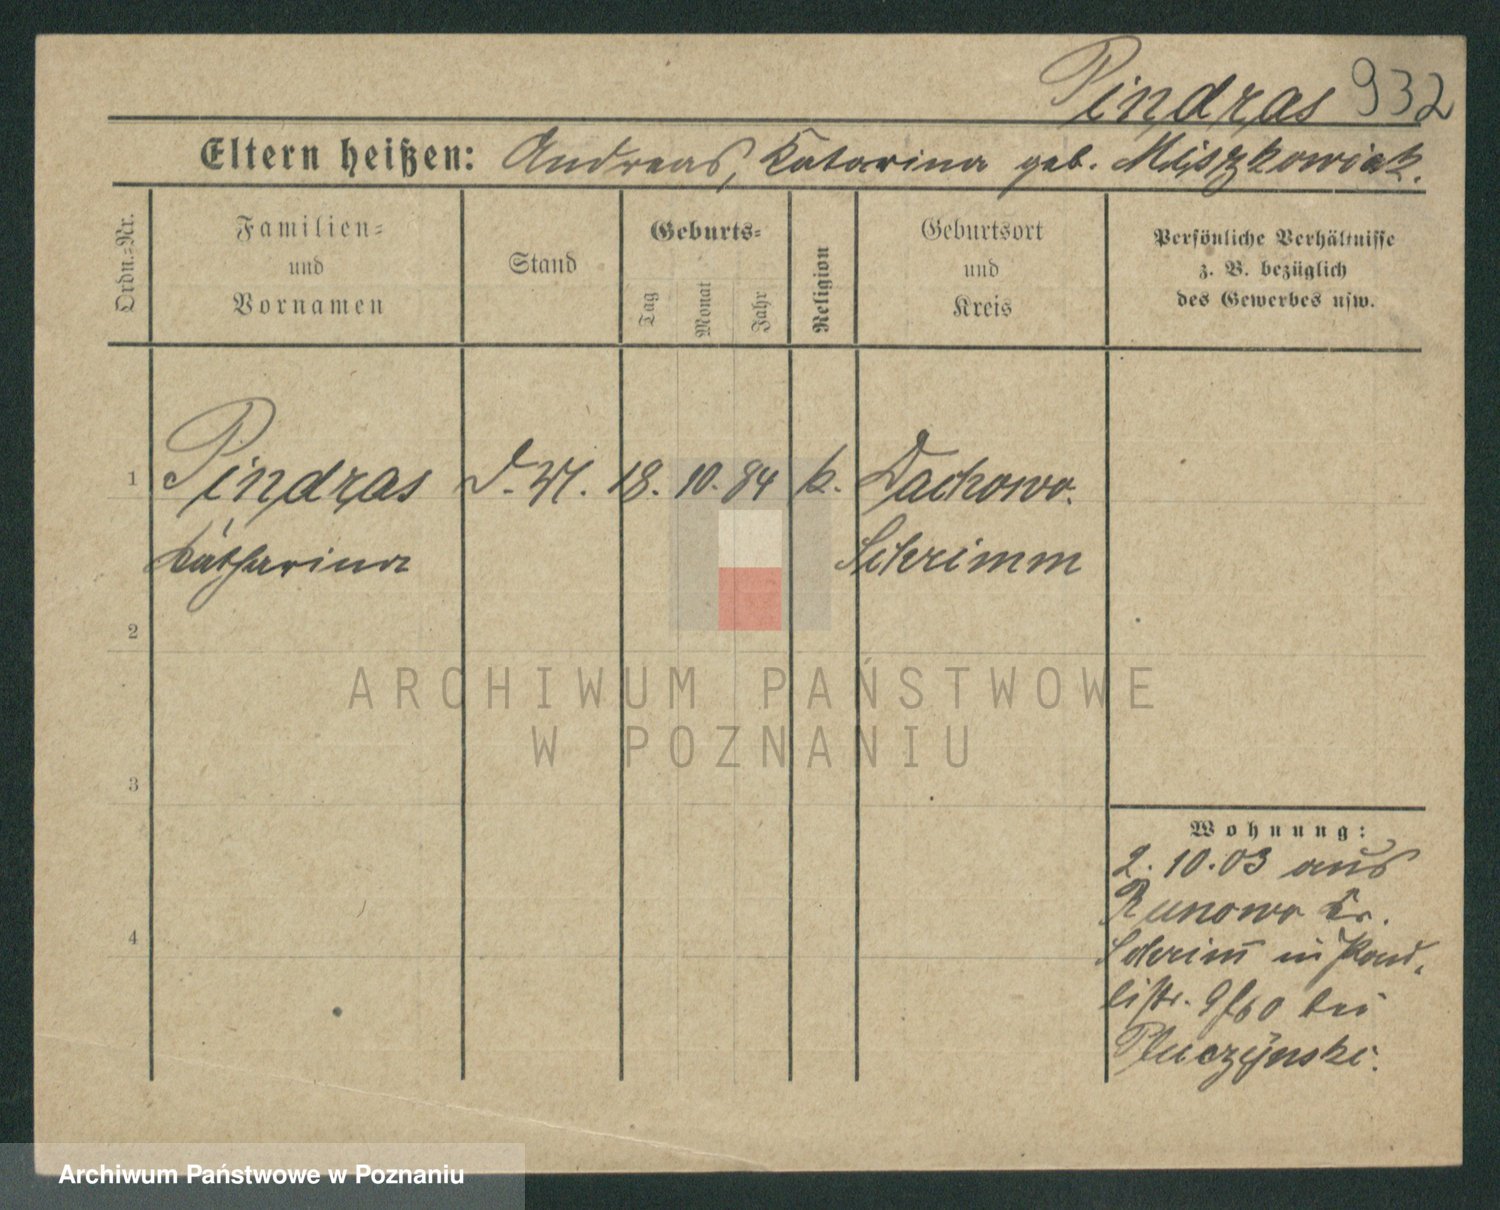 Pindras 932
Eltern heißen: Andreas, Katarina geb. Miszkowiak.
Ordn.-Nr.
Familien-
und
Vornamen
Stand
Geburts-
Tag
Monat
Jahr
Religion
Geburtsort
und
Kreis
Persönliche Verhältnisse
z. B. bezüglich
des Gewerbes usw.
1 Pindras D. M. 18. 10. 84 k. Dachowo.
Katharina Schrimm
2
3
4
Wohnung:
2. 10. 03 aus
Runowo Kr.
Schrim̄ in
bei
ARCHIWUM PAŃSTWOWE
W POZNANIU
Archiwum Państwowe w Poznaniu